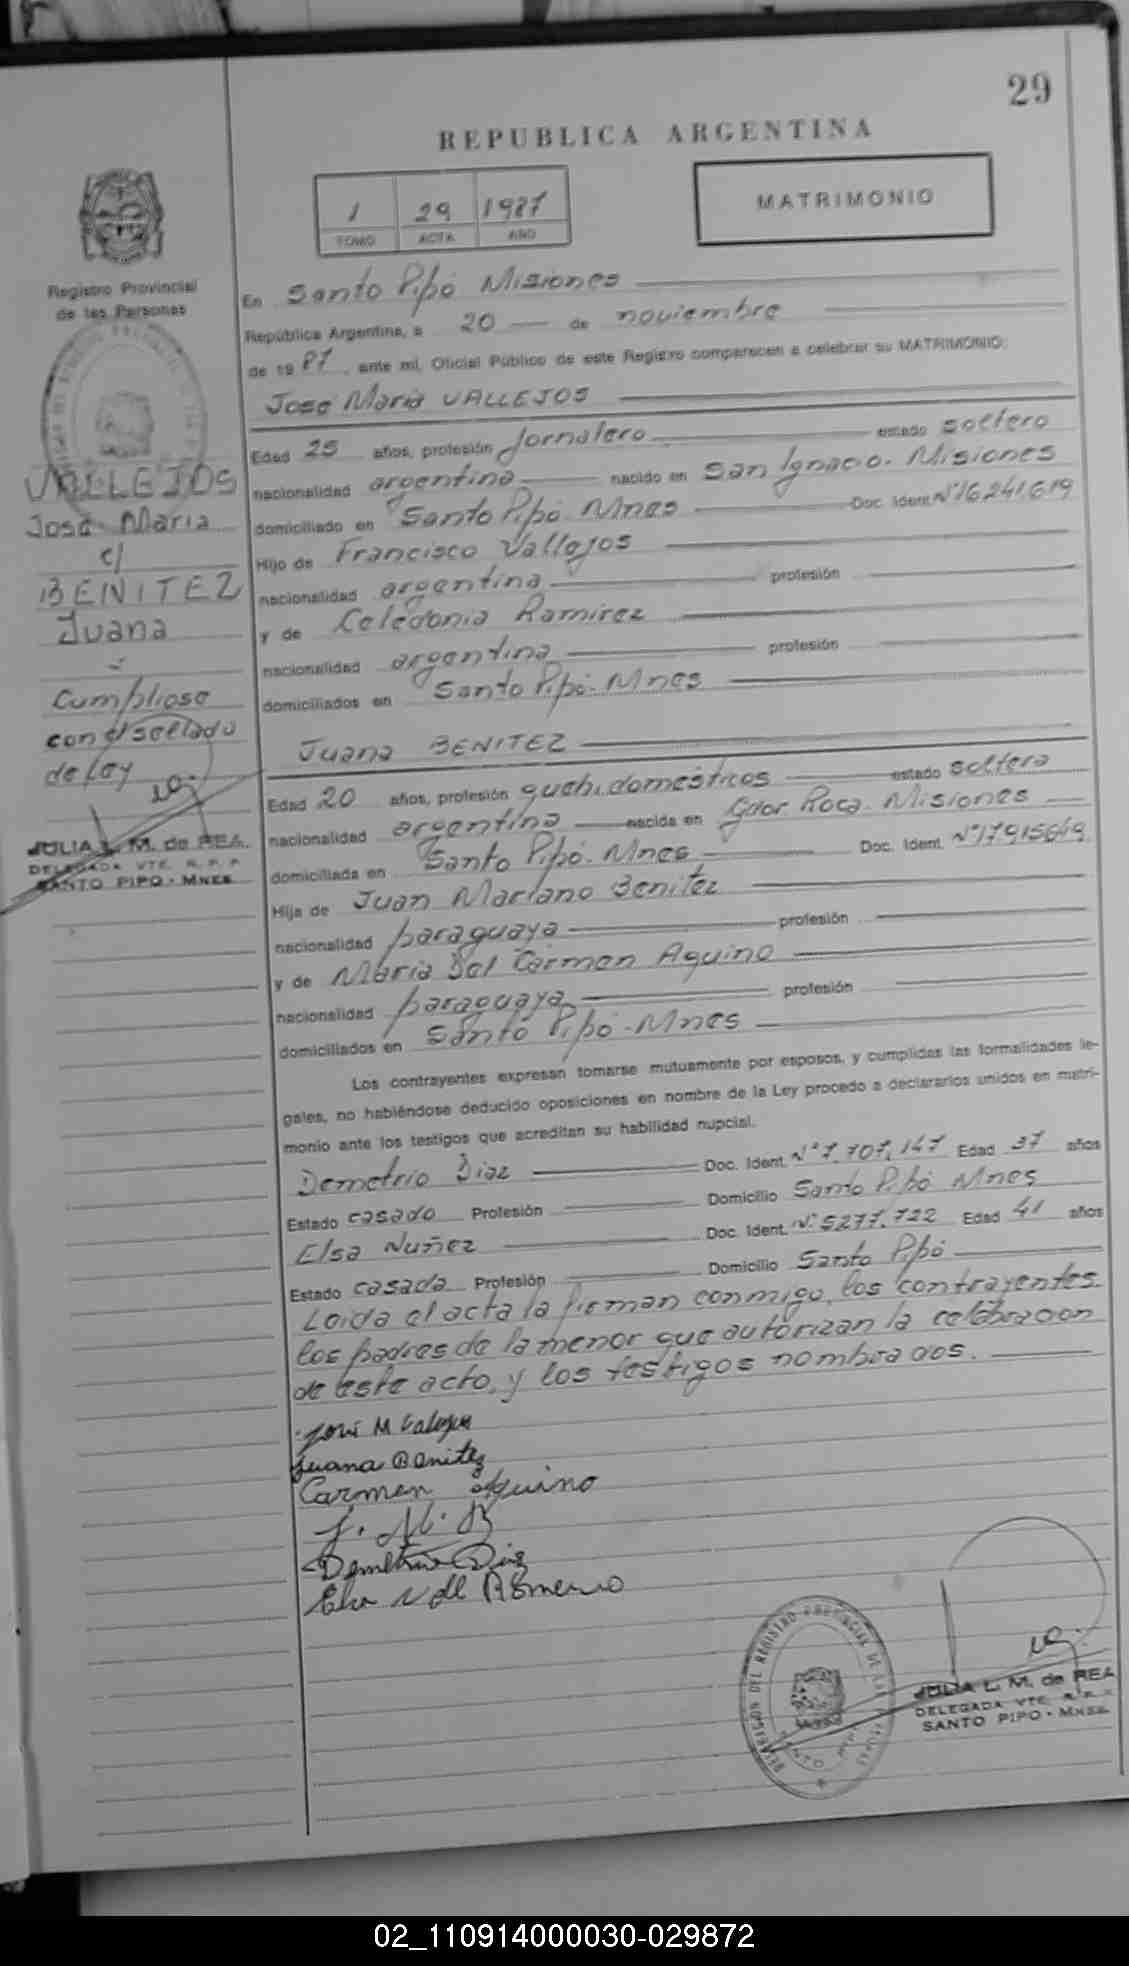 29
REPUBLICA ARGENTINA
1 29 1987
TOMO ACTA AÑO
MATRIMONIO
Registro Provincial
de las Personas
VALLEJOS
José Maria
c/
BENITEZ
Juana
Cumpliose
con el sellado
de ley
JULIA L. M. de REA
DELEGADA VTE. R. P. P.
SANTO PIPO - MNES
En Santo Pipó Misiones
República Argentina, a 20 de noviembre
de 1987, ante mí, Oficial Público de este Registro comparecen a celebrar su MATRIMONIO:
José Maria VALLEJOS
Edad 25 años, profesión Jornalero estado soltero
nacionalidad argentina nacido en San Ignacio. Misiones
domiciliado en Santo Pipó. Mnes Doc. Ident. N°16.241.619
Hijo de Francisco Vallejos
nacionalidad argentina profesión
y de Celedonia Ramirez
nacionalidad argentina profesión
domiciliados en Santo Pipó. Mnes
Juana BENITEZ
Edad 20 años, profesión queh. domésticos estado soltera
nacionalidad argentina nacida en Gdor. Roca. Misiones
domiciliada en Santo Pipó. Mnes Doc. Ident. N°17915649
Hija de Juan Mariano Benitez
nacionalidad paraguaya profesión
y de Maria Del Carmen Aquino
nacionalidad paraguaya profesión
domiciliados en Santo Pipó. Mnes
Los contrayentes expresan tomarse mutuamente por esposos, y cumplidas las formalidades le-
gales, no habiéndose deducido oposiciones en nombre de la Ley procedo a declararlos unidos en matri-
monio ante los testigos que acreditan su habilidad nupcial.
Demetrio Diaz Doc. Ident. N°7.707.147 Edad 37 años
Estado casado Profesión Domicilio Santo Pipó Mnes
Elsa Nuñez Doc. Ident. N°5277.722 Edad 41 años
Estado casada Profesión Domicilio Santo Pipó
Leida el acta la firman conmigo, los contrayentes.
los padres de la menor que autorizan la celebracion
de este acto, y los testigos nombrados.
José M Vallejos
Juana Benitez
Carmen Aquino
J. M. B
Demetrio Diaz
Elsa N de Romero
JULIA L. M. de REA
DELEGADA VTE. R. P. P.
SANTO PIPO - MNES.
02_110914000030-029872